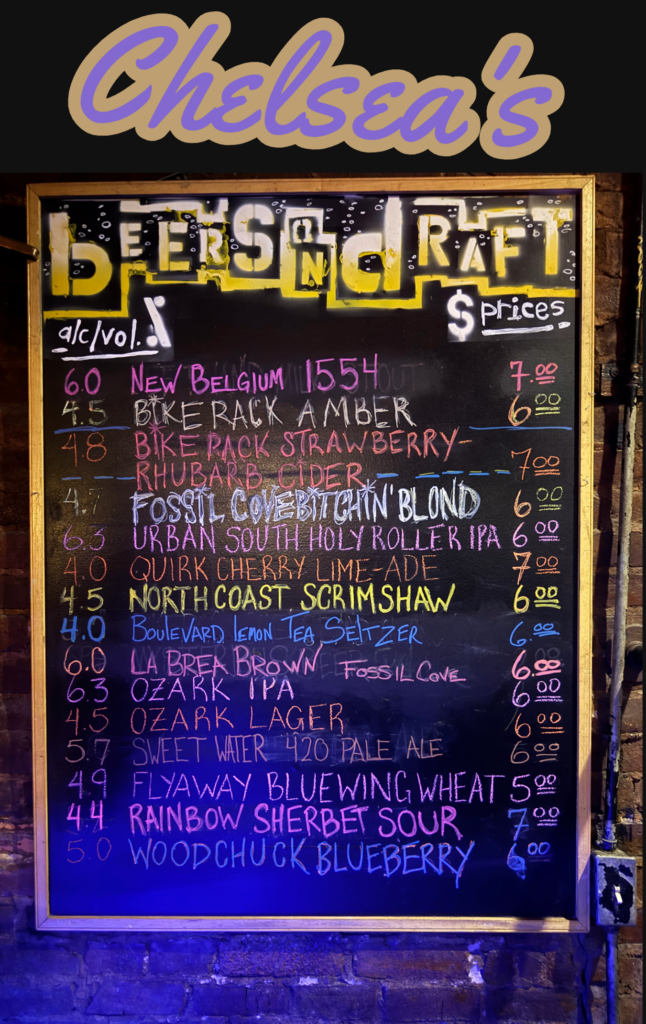 Chelsea's
bEERS ON dRAFT
alc/vol. %
$ prices
6.0 NEW BELGIUM 1554 7.00
4.5 BIKE RACK AMBER 6.00
4.8 BIKE RACK STRAWBERRY-
RHUBARB CIDER 7.00
4.7 FOSSIL COVE BITCHIN' BLOND 6.00
6.3 URBAN SOUTH HOLY ROLLER IPA 6.00
4.0 QUIRK CHERRY LIME-ADE 7.00
4.5 NORTH COAST SCRIMSHAW 6.00
4.0 BOULEVARD LEMON TEA SELTZER 6.00
6.0 LA BREA BROWN FOSSIL COVE 6.00
6.3 OZARK IPA 6.00
4.5 OZARK LAGER 6.00
5.7 SWEET WATER 420 PALE ALE 6.00
4.9 FLYAWAY BLUEWING WHEAT 5.00
4.4 RAINBOW SHERBET SOUR 7.00
5.0 WOODCHUCK BLUEBERRY 6.00